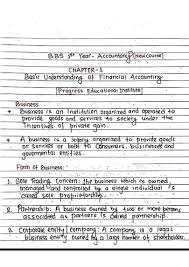 BBS 1st Year - Accountancy (new course)
CHAPTER-1
Basic Understanding of Financial Accounting
[Progress Educational Institute]
Business
Business is an Institution organized and operated to
provide goods and services to society under the
Incentives of private gain.
A business is a legally organized to provide goods
or services or both to consumers, businesses and
governmental entities.
Form of Business:
1. Sole Trading Concern: The business which is owned,
managed and controlled by a single individual is
called sole proprietorship.
2. Partnership: A business owned by two or more persons
associated as partners is called partnership.
3. Corporate entity/company: A company is a legal
business entity owned by a large number of shareholders.